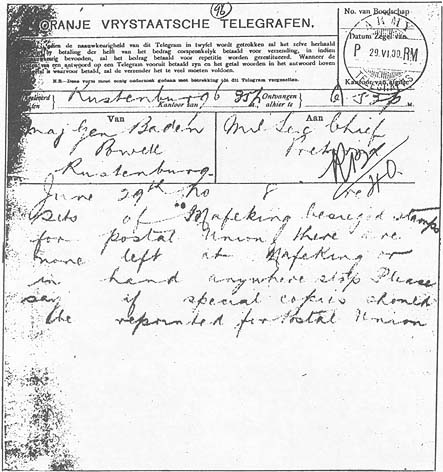 (96)
ORANJE VRYSTAATSCHE TELEGRAFEN.
No. van Boodschap
ARMY
Datum Zegel van
P 29.VI.00.RM
TELEGRAPHS
Indien de nauwkeurigheid van dit Telegram in twyfel wordt getrokken zal het zelve herhaald
by betaling der helft van het bedrag oorspronkelyk betaald voor verzending, in indien
bevonden, zal het bedrag betaald voor repetitie worden gerestitueerd. Wanneer de
van antwoord op een Telegram vooruit betaald zyn en het getal woorden in het antwoord boven
is waarvoor betaald, zal de verzender het te veel moeten voldoen.
N.B.—Deze vorm moet eenig onderzoek gedaan met betrekking tot dit Telegram vergezellen.
Rustenburg 6 35p Ontvangen
Kantoor van alhier te
Van Aan
Maj Gen Baden Mil Sec Chief
Powell Pretoria
Rustenburg
June 29th No 8
sets of Mafeking besieged stamps
for postal Union, there are
none left at Mafeking or
in hand anywhere stop Please
say if special copies should
be reprinted for Postal Union